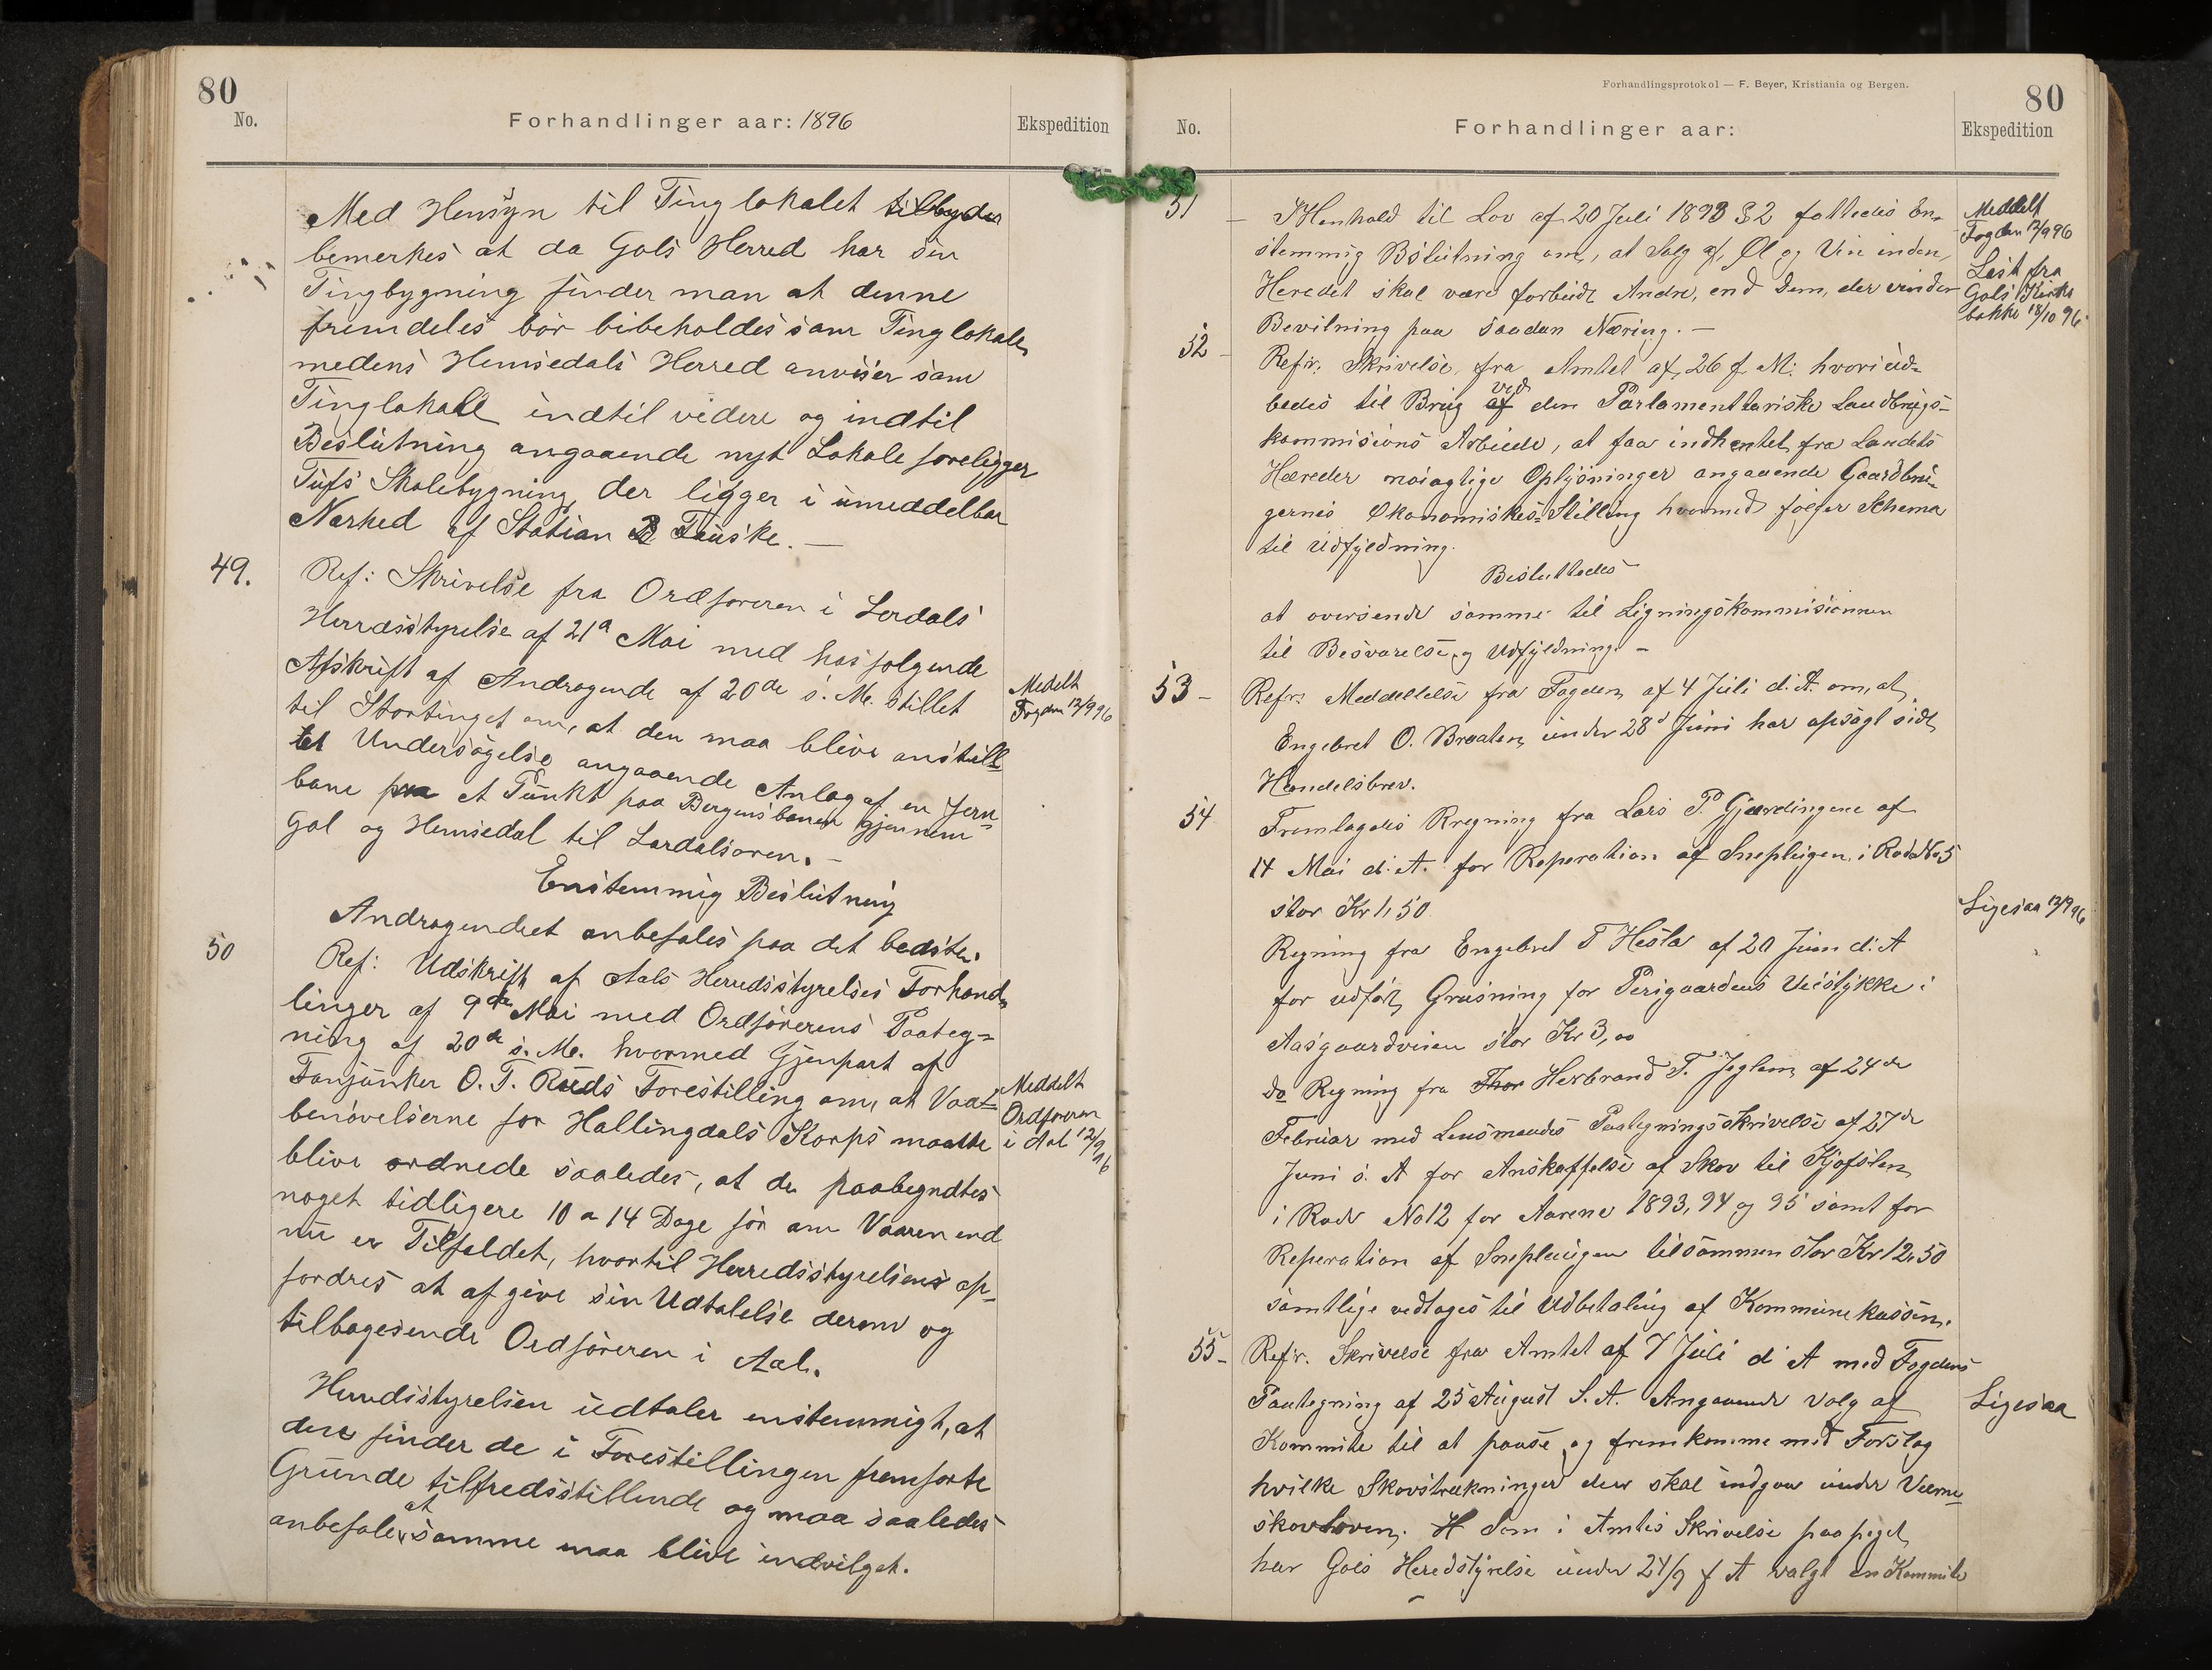 80
No.
Forhandlinger aar: 1896
Ekspedition
Med Hensyn til Tinglokalet tilbydes
bemerkes at da Gols Herred har sin
Tingbygning finder man at denne
fremdeles bör bibeholdes som Tinglokale
medens Hemsedals Herred anviser som
Tinglokale indtil videre og indtil
Beslutning angaaende nyt Lokale foreligger
Tufs Skolebygning, der ligger i umeddelbar
Nærhed af Station Fauske. —
49.
Ref: Skrivelse fra Ordföreren i Lerdals
Herredsstyrelse af 21a Mai med hosfolgende
Afskrift af Andragende af 20de s. M. stillet
til Stortinget om, at den maa blive anstill-
tet Undersögelse angaaende Anlæg af en Jern-
bane paa et Punkt paa Bergensbanen gjennem
Gol og Hemsedal til Lærdalsoren. —
Medelt
Fogden 12/9 96
Enstemmig Beslutning
Andragendet anbefales paa det bedste.
50
Ref: Udskrift af Aals Herredsstyrelses Forhand-
linger af 9de Mai med Ordförerens Paateg-
ning af 20de s. M. hvormed Gjenpart af
Fanjunker O. T. Ruds Forestilling om, at Vaat-
benövelserne for Hallingdals Korps maatte
blive ordnede saaledes, at de paabegyndtes
noget tidligere 10 a 14 Dage för om Vaaren end
nu er Tilfældet, hvortil Herredsstyrelsens op-
fordres at afgive sin Udtalelse derom og
tilbagesende Ordföreren i Aal.
Meddelt
Ordföreren
i Aal 12/9 96
Herredsstyrelsen udtaler enstemmigt, at
dere finder de i Forestillingen fremforte
Grunde tilfredsstillende og maa saaledes
anbefale at samme maa blive indvilget.
Forhandlingsprotokol — F. Beyer, Kristiania og Bergen.
80
No.
Forhandlinger aar:
Ekspedition
51 —
I Henhold til Lov af 20 Juli 1893 § 2 fattedes En-
stemmig Bslutning om, at Salg af, Öl og Vin inden,
Heredet skal være forbudt Andre, end Dem, der vinder
Bevilning paa saadan Næring. —
Meddelt
Fogden 12/9 96
Læst fra
Gols Kirke
bakke 18/10 96
52 —
Refr. Skrivelse, fra Amtet af, 26 f. M: hvori ud-
bedes til Brug af ved den Parlamenttariske Landbrugs-
kommisions Arbeide, at faa indhentet fra Landets
Hæreder nöiagtige Oplysninger angaaende Gaardbru-
gernes Ökonomiskes-Stilling hvormed fölger Schema
til Udfyldning.
Beslutttedes
at oversende samme til Ligningskommisionen
til Besvarelse og Udfyldning. —
53 —
Refr. Meddellelse fra Fogden af 4 Juli d. A. om, at
Engebret O. Braaten under 28d Juni har opsagt sidt
Handelsbrev.
54
Fremlagdes Rregning fra Lars P. Gjærdingene af
14 Mai d. A. for Reperation af Sneplugen i Rode No 5
stor Kr 1,50.
Ligesaa 12/9 96
Regning fra Engebret T Hesla af 20 Juni d. A
for udfört Grusning for Perigaardens Veistykke i
Aasgaardveien stor Kr 3,00
do Regning fra Thor Herbrand T. Jeglem af 24de
Februar med Lensmandes Paategningsskrivelse af 27de
Juni s. A for Anskaffelse af Skov til Kjofsten
i Rode No 12 for Aarene 1893, 94 og 95 samt for
Reperation af Sneplaugen tilsammen stor Kr 12,50
samtlige vedtages til Udbetaling af Kommunekassen.
55 —
Refr. Skrivelse fra Amtet af 7 Juli d A med Fogdens
Paategning af 25 August S. A. Angaaende Valg af
Kommite til at paase og fremkomme med Forslag
hvilke Skovstrækninger der skal indgaa under Verne-
skovloven. Som i Amtes Skrivelse paapeget
har Gols Heredstyrelse under 24/9 f A valgt en Kommite
Ligesaa